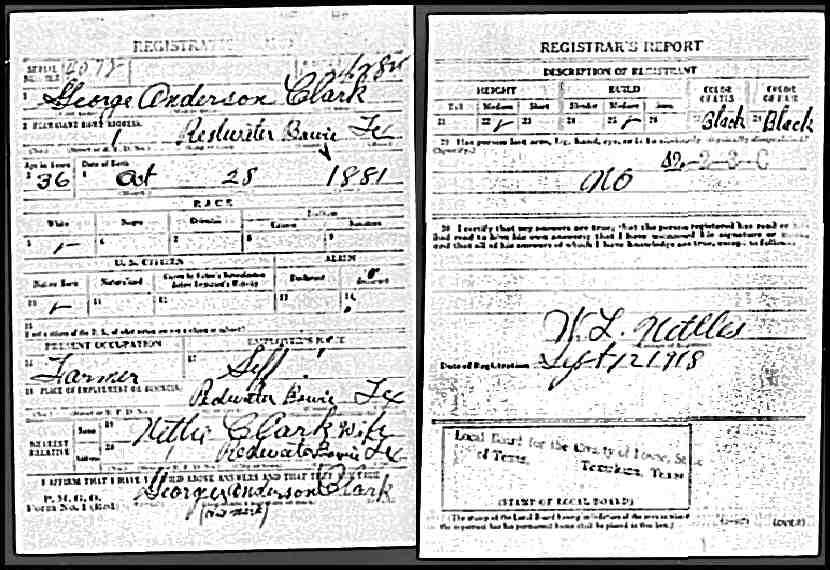 REGISTRATION CARD
SERIAL NUMBER
1 George Anderson Clark
2 PERMANENT HOME ADDRESS:
Redwater Bowie Tex
Age in Years Date of Birth
3 36 4 Oct 28 1881
RACE
White Negro Oriental Indian
Citizen
5 ✓ 6 7 8 9
U. S. CITIZEN ALIEN
Native Born Naturalized Citizen by Father's Naturalization Before Registrant's Majority Declarant
10 ✓ 11 12 13 14
15
If not a citizen of the U. S., of what nation are you a citizen or subject?
PRESENT OCCUPATION EMPLOYER'S NAME
16 Farmer 17 Self
18 PLACE OF EMPLOYMENT OR BUSINESS:
Redwater Bowie Tex
NEAREST RELATIVE
Name 19 Nettie Clark wife
Address 20 Redwater Bowie Tex
I AFFIRM THAT I HAVE VERIFIED ABOVE ANSWERS AND THAT THEY ARE TRUE
P. M. G. O.
Form No. 1 (Red)
George Anderson Clark
REGISTRAR'S REPORT
DESCRIPTION OF REGISTRANT
HEIGHT BUILD COLOR OF EYES COLOR OF HAIR
Tall Medium Short Slender Medium Stout
21 22 ✓ 23 24 25 ✓ 26 27 Black 28 Black
29 Has person lost arm, leg, hand, eye, or is he obviously physically disqualified?
(Specify.)
No
30 I certify that my answers are true; that the person registered has read or has
had read to him his own answers; that I have witnessed his signature or
and that all of his answers of which I have knowledge are true, except as follows:
W. L. Nettles
Date of Registration Sept 12 1918
Local Board for the County of Bowie, State
of Texas, Texarkana, Texas
(STAMP OF LOCAL BOARD)
(The stamp of the Local Board having jurisdiction of the area in which
the registrant has his permanent home shall be placed in this box.)
(OVER)